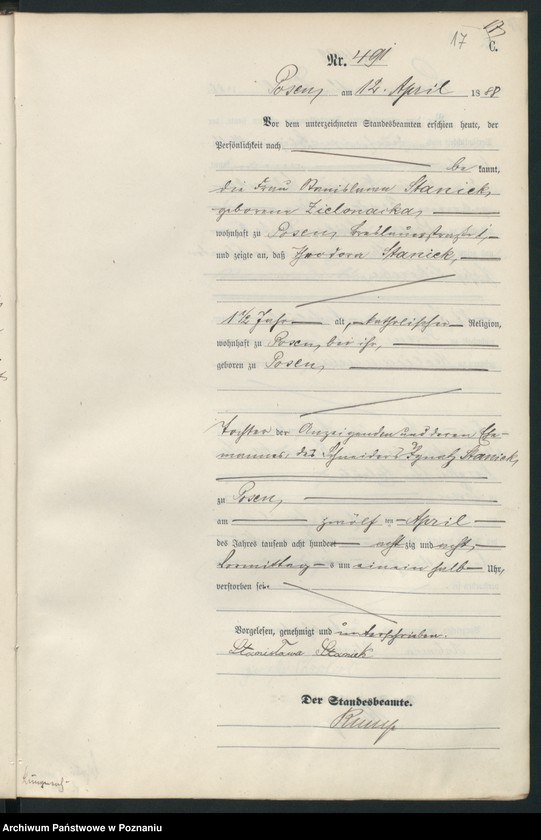 17
C.
Nr. 491
Posen, am 12. April 1888
Vor dem unterzeichneten Standesbeamten erschien heute, der
Persönlichkeit nach
be kannt,
die Frau Stanislawa Stanick,
geborene Zielonacka,
wohnhaft zu Posen, Breslauerstraße
und zeigte an, daß Theodora Stanick,
1 1/2 Jahr alt, katholischer Religion,
wohnhaft zu Posen, bei ihr,
geboren zu Posen,
Tochter der Anzeigenden und deren Ehe-
mannes des Schneiders Ignatz Stanick,
zu Posen,
am zwölf ten April
des Jahres tausend acht hundert acht zig und acht,
Vormittag s um ein ein halb Uhr,
verstorben sei.
Vorgelesen, genehmigt und unterschrieben.
Stanisława Stanick
Der Standesbeamte.
Archiwum Państwowe w Poznaniu